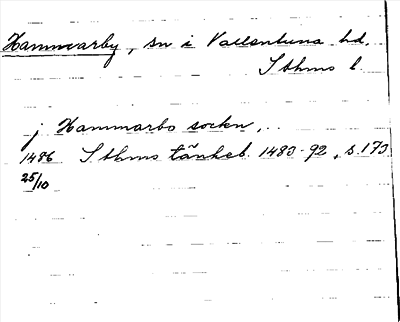 Hammarby, sn i Vallentuna hd,
Sthms l.
j Hammarbo socken,
1486 Sthms tänkeb. 1483-92, s. 173
25/10